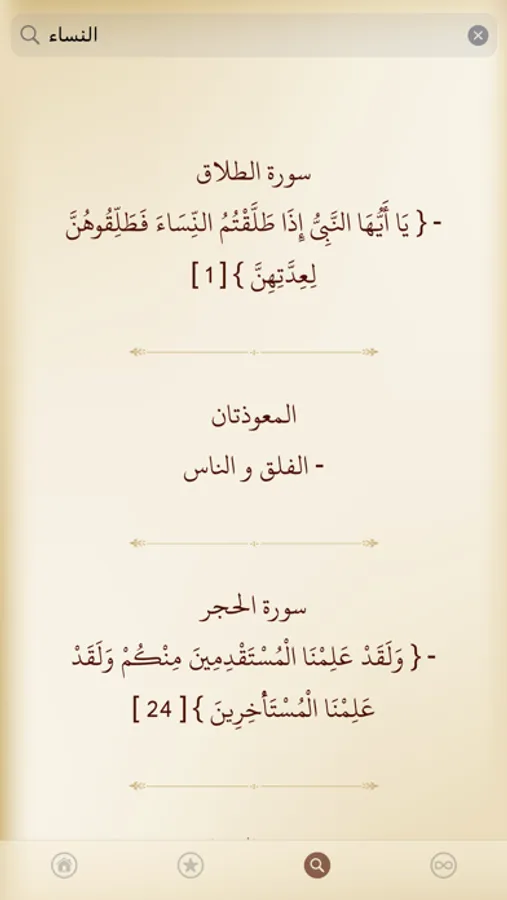 النساء
سورة الطلاق
- { يَا أَيُّهَا النَّبِيُّ إِذَا طَلَّقْتُمُ النِّسَاءَ فَطَلِّقُوهُنَّ
لِعِدَّتِهِنَّ } [ 1 ]
المعوذتان
- الفلق و الناس
سورة الحجر
- { وَلَقَدْ عَلِمْنَا الْمُسْتَقْدِمِينَ مِنْكُمْ وَلَقَدْ
عَلِمْنَا الْمُسْتَأْخِرِينَ } [ 24 ]